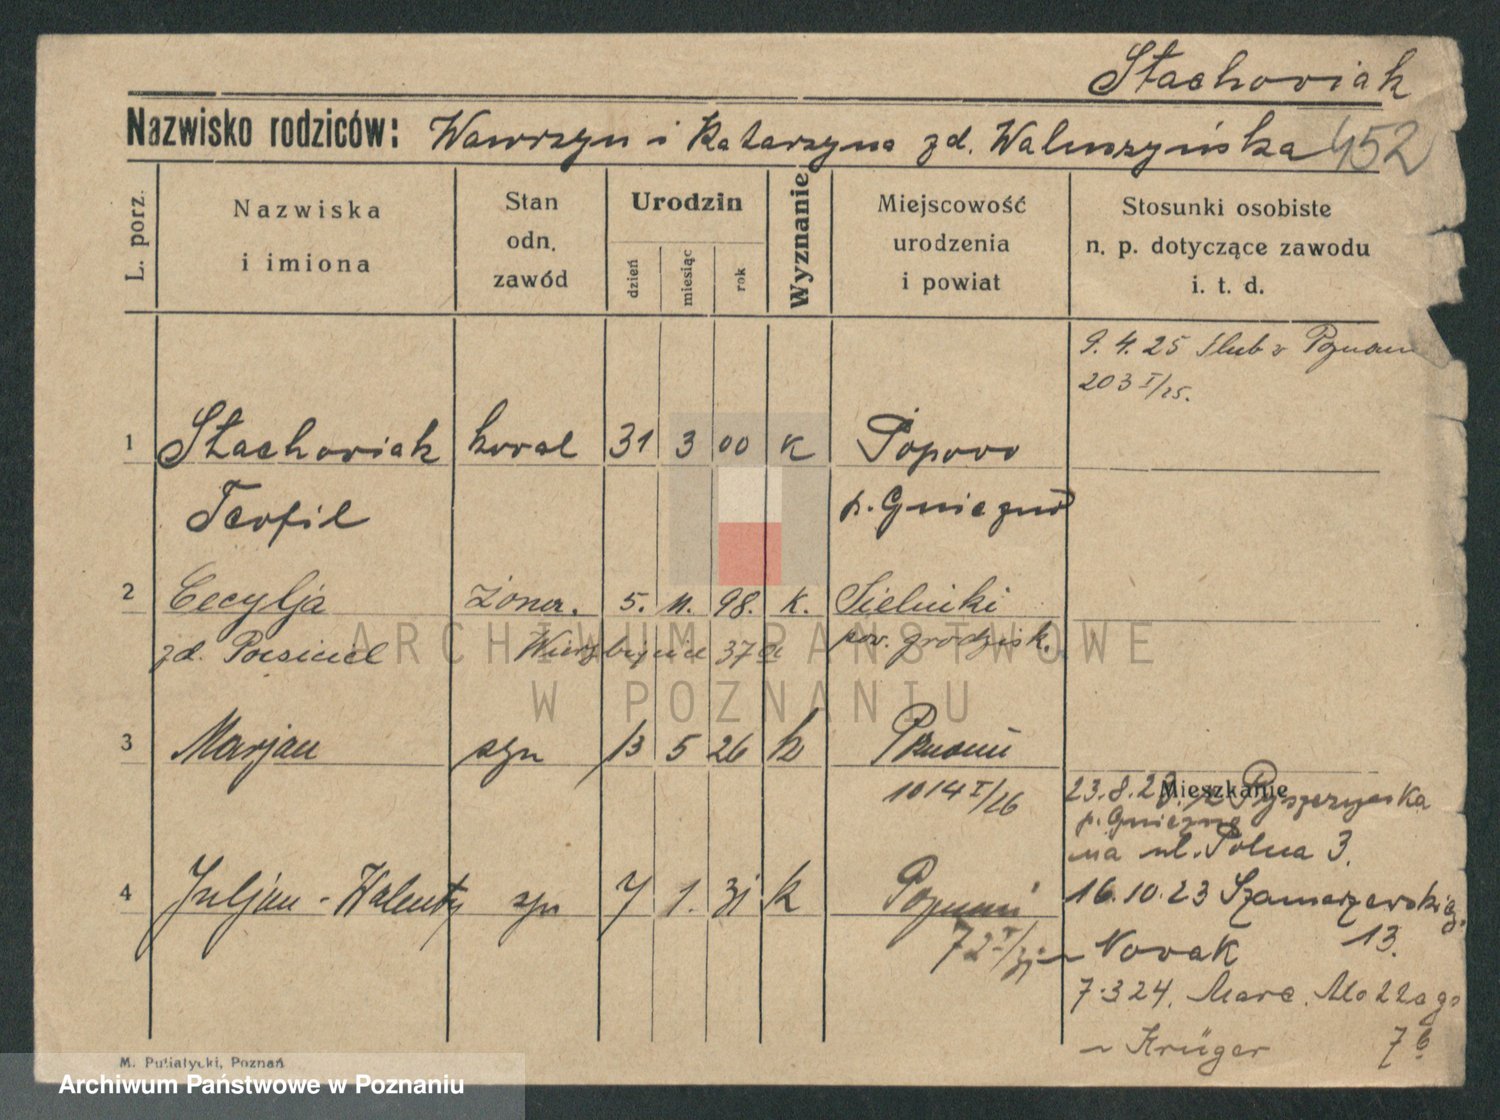 Stachowiak
Nazwisko rodziców: Wawrzyn i Katarzyna zd. Waluszyńska 452
L. porz. Nazwiska i imiona Stan odn. zawód Urodzin dzień miesiąc rok Wyznanie Miejscowość urodzenia i powiat Stosunki osobiste n. p. dotyczące zawodu i. t. d.
9. 4. 25 Ślub w Poznaniu
203 I/25.
1 Stachowiak kowal 31 3 00 K Popowo
Teofil p. Gniezno
2 Cecylja żona. 5. 11. 98. K. Sielinki
zd. 37a pow. grodzisk.
3 Marjan syn 13 5 26 k Poznań
1014 I/26
Mieszkanie
23.8.23. z
p. Gniezno
na ul. Polna 3.
4 Juljan - Walenty syn 7 1. 31 k Poznań
72 I/31
16.10.23 Szamarzewskieg.
Nowak 13.
7.3 24. Marc. Mottego
Krüger 7b
M. Putiatycki, Poznań
ARCHIWUM PAŃSTWOWE
W POZNANIU
Archiwum Państwowe w Poznaniu